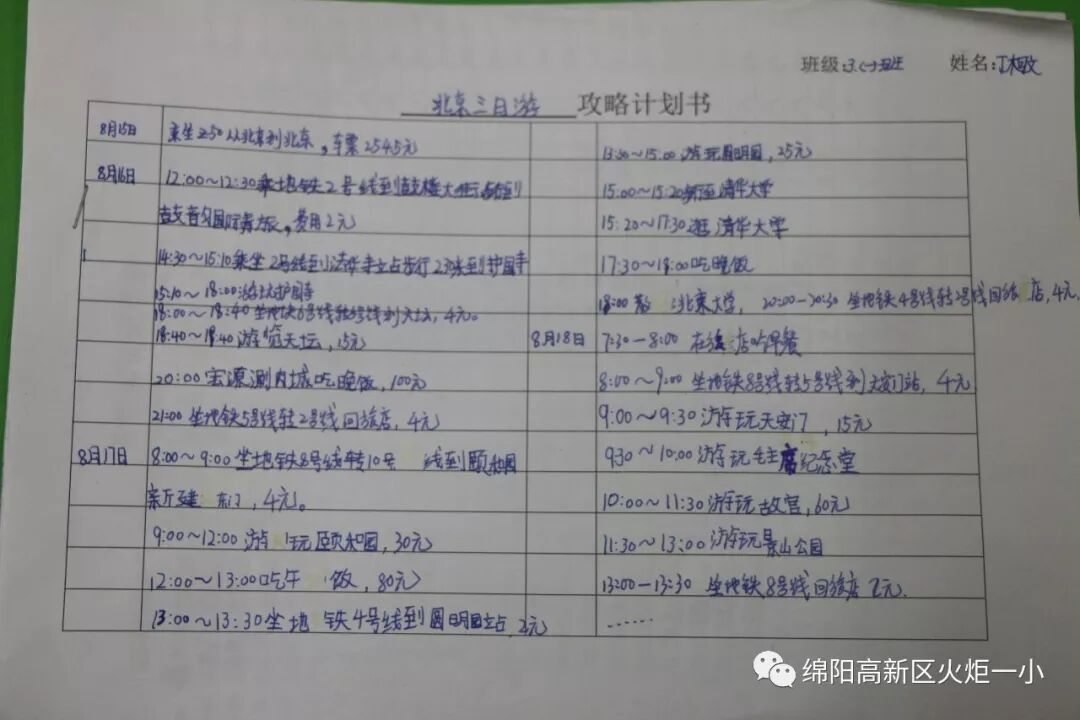 班级:3.(一)班 姓名:丁
北京三日游 攻略计划书
8月15日 乘坐Z50从北京到北京,车票254.5元
8月16日 12:00~12:30乘地铁2号线到鼓楼大街
国际青旅,费用2元
14:30~15:10乘坐2号线到 步行 到护国寺
15:10~18:00游玩护国寺
18:00~18:40坐地铁6号线转5号线到天坛,4元。
18:40~18:40游览天坛,15元
20:00宏源涮肉城吃晚饭,100元
21:00坐地铁5号线转2号线回旅店,4元
8月17日 8:00~9:00坐地铁8号线转10号 线到颐和园
新建 东门,4元。
9:00~12:00游 玩颐和园,30元
12:00~13:00吃午 饭,80元
13:00~13:30坐地 铁4号线到圆明园站,2元
13:30~15:00游玩圆明园,25元
15:00~15:20 清华大学
15:20~17:30逛清华大学
17:30~18:00吃晚饭
18:00 北京大学,20:00-20:30坐地铁4号线转2号线回旅 店,4元
8月18日 7:30-8:00 在旅 店吃早餐
8:00~9:00坐地铁8号线转5号线到天安门站,4元
9:00~9:30游玩天安门,15元
9:30~10:00游玩毛主席纪念堂
10:00~11:30游玩故宫,60元
11:30~13:00游玩景山公园
13:00-13:30 坐地铁8号线回旅店 2元.
……
绵阳高新区火炬一小